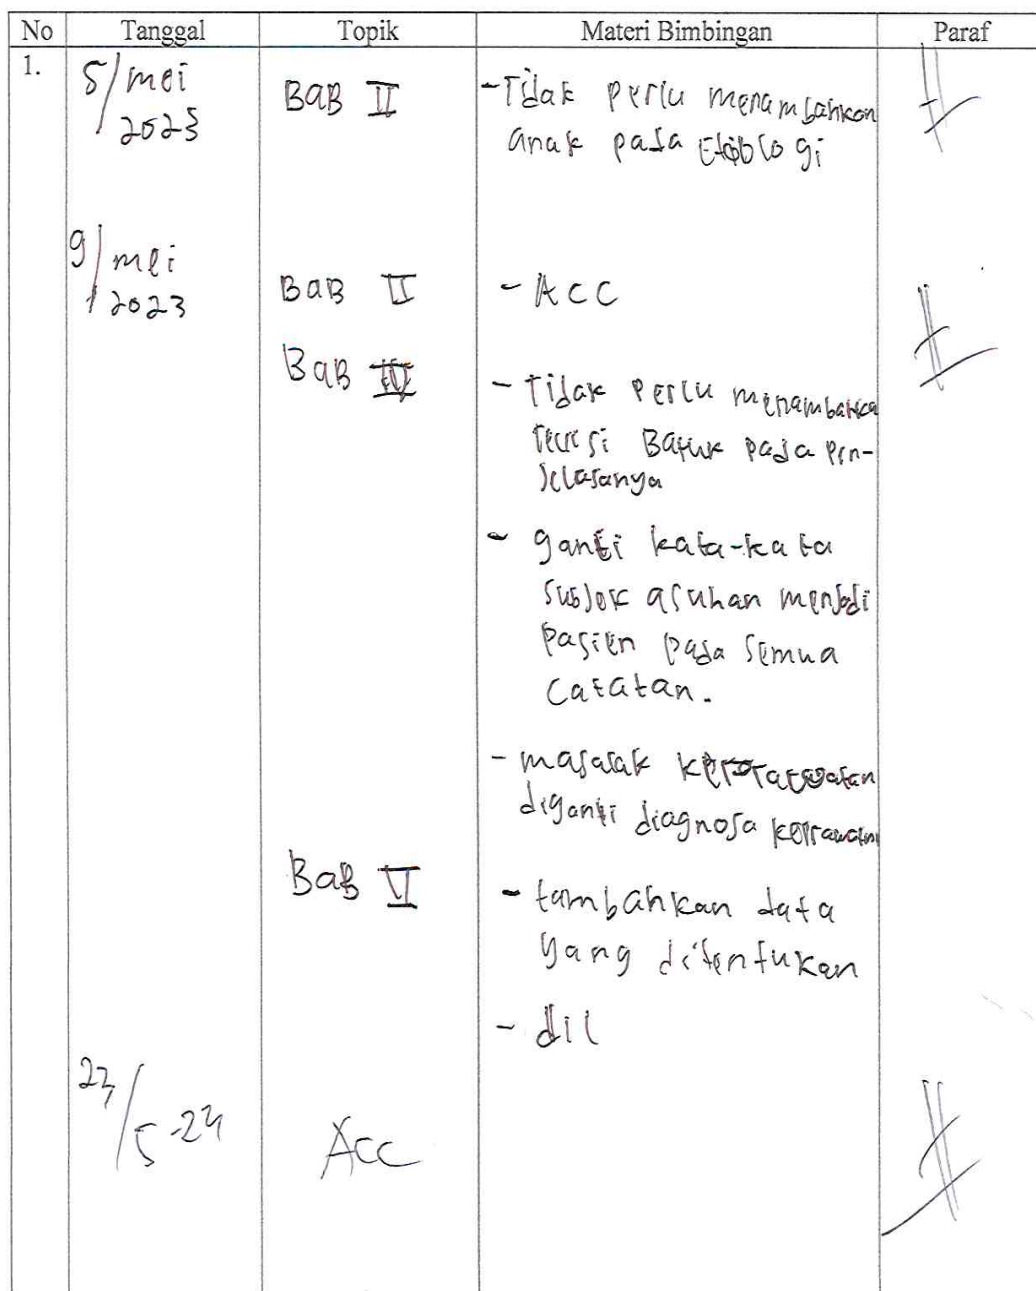 No Tanggal Topik Materi Bimbingan Paraf
1. 5/mei 2023 BAB II - Tidak perlu menambahkan
anak pada Etiologi
9/mei 2023 BAB II - Acc
BAB IV - Tidak perlu menambahka
Batuk pada pen-
jelasanya
- ganti kata-kata
subjek asuhan menjadi
pasien pada semua
catatan.
- masalah keperawatan
diganti diagnosa keperawatan
BAB V - tambahkan data
yang ditentukan
- dll
5-24 Acc